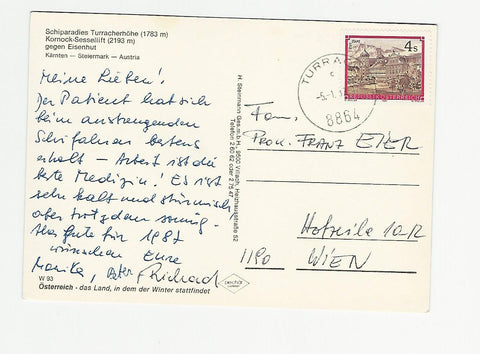 Schiparadies Turracherhöhe (1783 m)
Kornock-Sessellift (2193 m)
gegen Eisenhut
Kärnten — Steiermark — Austria
Meine Lieben!
Der Patient hat sich
beim anstrengenden
Schifahren bestens
erholt – Arbeit ist die
beste Medizin! Es ist
sehr kalt und stürmisch
aber trotzdem sonnig.
Alles Gute für 1987
wünschen Eure
Monika, Peter + Richard
W 93
Österreich - das Land, in dem der Winter stattfindet
Ges.m.b.H. 9500 Villach,
Telefon 2 60 62 oder 2 75 47
TURRAC
8864
4s
REPUBLIK ÖSTERREICH
Fam.
FRANZ
1190
WIEN